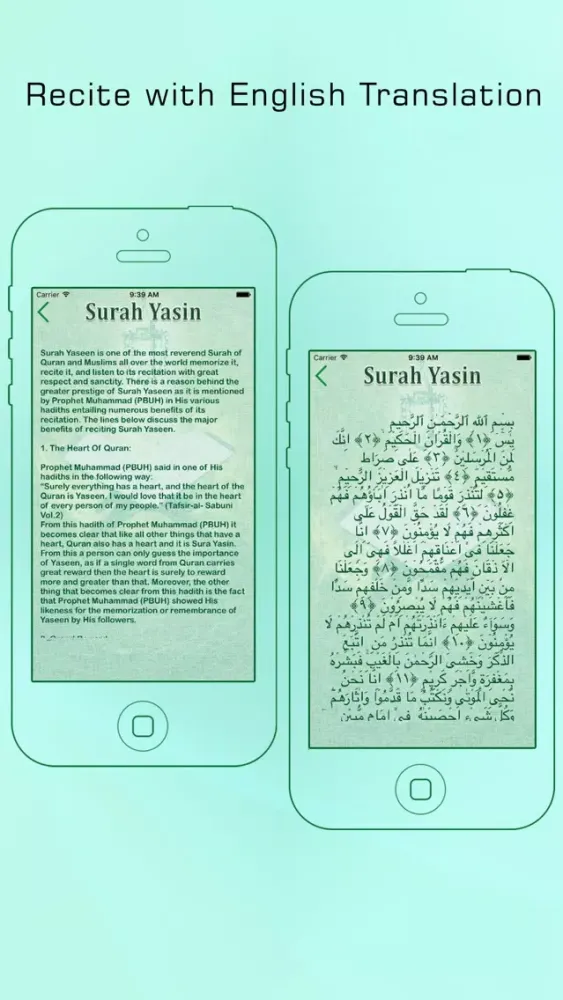 Recite with English Translation
Carrier 9:39 AM
Surah Yasin
Surah Yaseen is one of the most reverend Surah of
Quran and Muslims all over the world memorize it,
recite it, and listen to its recitation with great
respect and sanctity. There is a reason behind the
greater prestige of Surah Yaseen as it is mentioned
by Prophet Muhammad (PBUH) in His various
hadiths entailing numerous benefits of its
recitation. The lines below discuss the major
benefits of reciting Surah Yaseen.
1. The Heart Of Quran:
Prophet Muhammad (PBUH) said in one of His
hadiths in the following way:
“Surely everything has a heart, and the heart of the
Quran is Yaseen. I would love that it be in the heart
of every person of my people.” (Tafsir-al- Sabuni
Vol.2)
From this hadith of Prophet Muhammad (PBUH) it
becomes clear that like all other things that have a
heart, Quran also has a heart and it is Sura Yasin.
From this a person can only guess the importance
of Yaseen, as if a single word from Quran carries
great reward then the heart is surely to reward
more and greater than that. Moreover, the other
thing that becomes clear from this hadith is the fact
that Prophet Muhammad (PBUH) showed His
likeness for the memorization or remembrance of
Yaseen by His followers.
Carrier 9:39 AM
Surah Yasin
بِسْمِ اللّٰهِ الرَّحْمٰنِ الرَّحِيْمِ
يٰسٓ ﴿١﴾ وَالْقُرْاٰنِ الْحَكِيْمِ ﴿٢﴾ اِنَّكَ
لَمِنَ الْمُرْسَلِيْنَ ﴿٣﴾ عَلٰى صِرَاطٍ
مُّسْتَقِيْمٍ ﴿٤﴾ تَنْزِيْلَ الْعَزِيْزِ الرَّحِيْمِ
﴿٥﴾ لِتُنْذِرَ قَوْمًا مَّاۤ اُنْذِرَ اٰبَآؤُهُمْ فَهُمْ
غٰفِلُوْنَ ﴿٦﴾ لَقَدْ حَقَّ الْقَوْلُ عَلٰٓى
اَكْثَرِهِمْ فَهُمْ لَا يُؤْمِنُوْنَ ﴿٧﴾ اِنَّا
جَعَلْنَا فِىْۤ اَعْنَاقِهِمْ اَغْلٰلًا فَهِىَ اِلَى
الْاَذْقَانِ فَهُمْ مُّقْمَحُوْنَ ﴿٨﴾ وَجَعَلْنَا
مِنْۢ بَيْنِ اَيْدِيْهِمْ سَدًّا وَّمِنْ خَلْفِهِمْ سَدًّا
فَاَغْشَيْنٰهُمْ فَهُمْ لَا يُبْصِرُوْنَ ﴿٩﴾
وَسَوَآءٌ عَلَيْهِمْ ءَاَنْذَرْتَهُمْ اَمْ لَمْ تُنْذِرْهُمْ لَا
يُؤْمِنُوْنَ ﴿١٠﴾ اِنَّمَا تُنْذِرُ مَنِ اتَّبَعَ
الذِّكْرَ وَخَشِىَ الرَّحْمٰنَ بِالْغَيْبِ فَبَشِّرْهُ
بِمَغْفِرَةٍ وَّاَجْرٍ كَرِيْمٍ ﴿١١﴾ اِنَّا نَحْنُ
نُحْىِ الْمَوْتٰى وَنَكْتُبُ مَا قَدَّمُوْا وَاٰثَارَهُمْ
وَكُلَّ شَىْءٍ اَحْصَيْنٰهُ فِىْۤ اِمَامٍ مُّبِيْنٍ